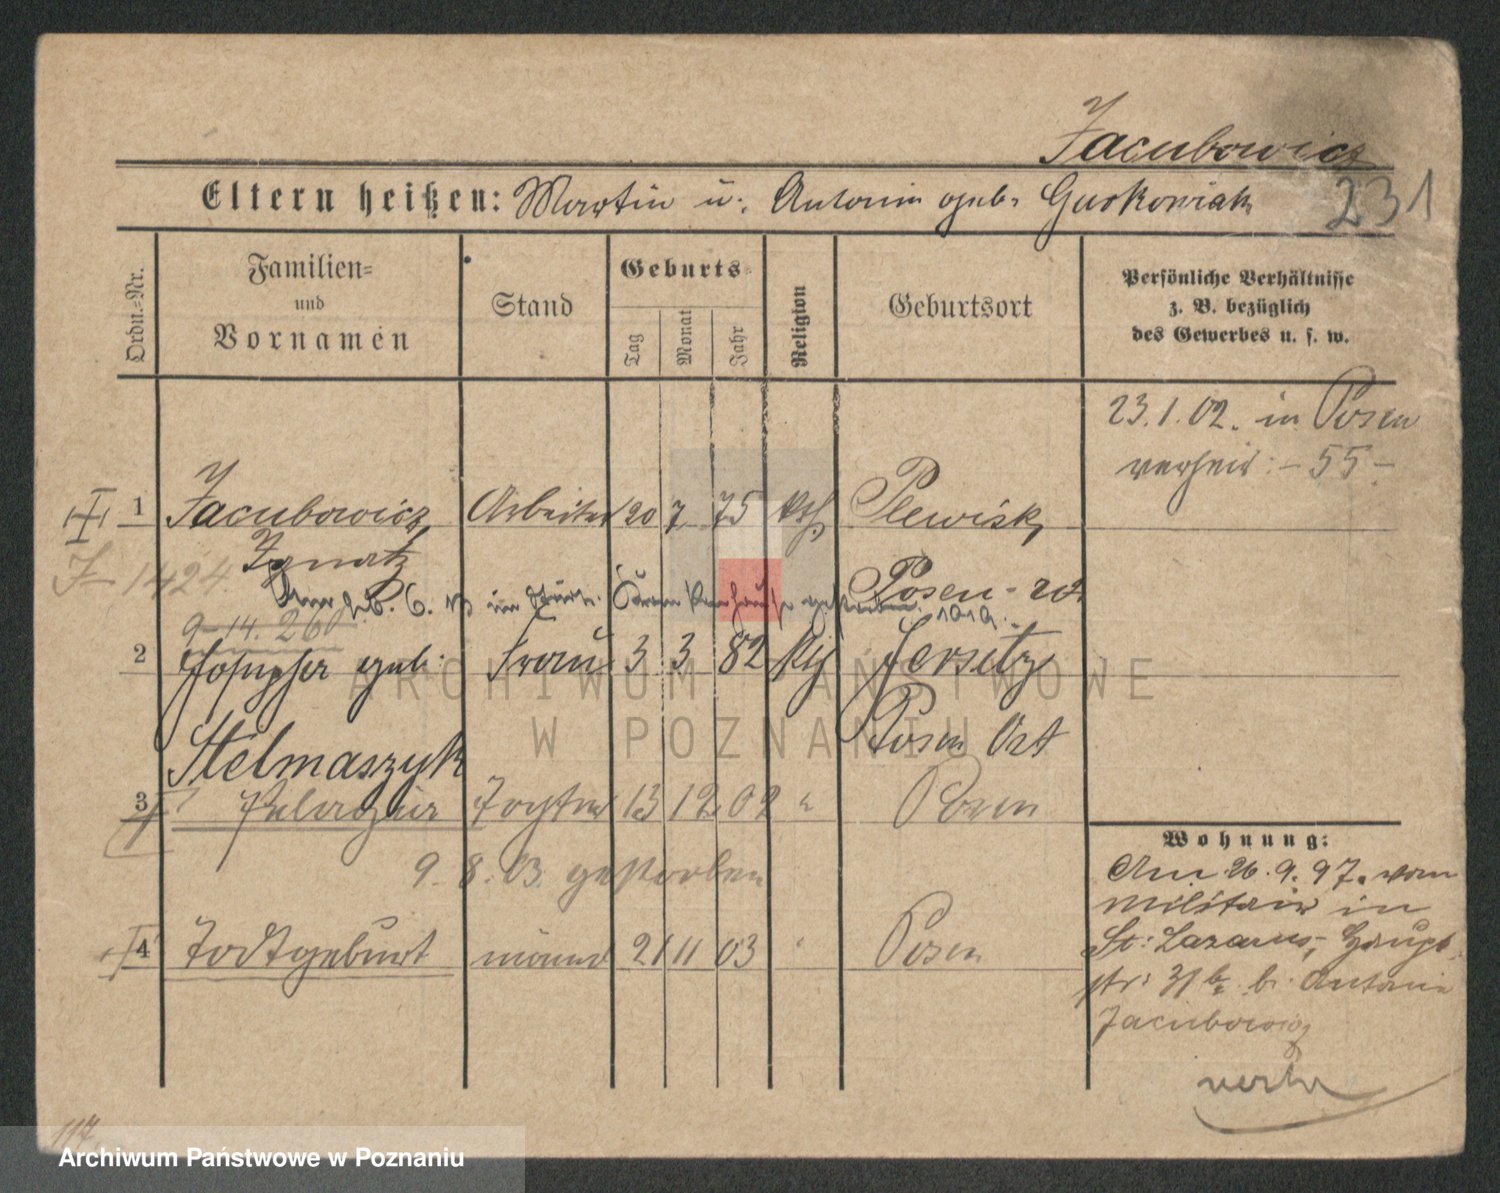 Jacubowicz
Eltern heißen: Martin u. Antonin geb. Guskowiak
231
Ordn.=Nr.
Familien=
und
Vornamen
Stand
Geburts=
Tag
Monat
Jahr
Religion
Geburtsort
Persönliche Verhältnisse
z. B. bezüglich
des Gewerbes u. s. w.
23.1.02. in Posen
verheir: - 55 -
1 Jacubowicz, Arbeiter 20 7 75 kth Plewisk,
Ignatz
J 1424
Posen
6. im gestorben. 1919.
9-14. 260
2 Josepha geb: Frau 3 3 82 Kth Jersitz
Posen Ost
Stelmaszyk
3 Pelagia Tochter 13 12 02 " Posen
9.8.03 gestorben
4 Todtgeburt männl 21 11 03 " Posen
Wohnung:
Am 26.9.97. vom
Militair in
St: Lazarus, Haupt
str: 31 b. b. Antonie
Jacubowicz
verh
117.
ARCHIWUM PAŃSTWOWE
W POZNANIU
Archiwum Państwowe w Poznaniu